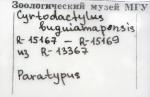 Зоологический музей МГУ
Cyrtodactylus
buguiamapensis
R-15167 – R-15169
из R-13367
Paratypus